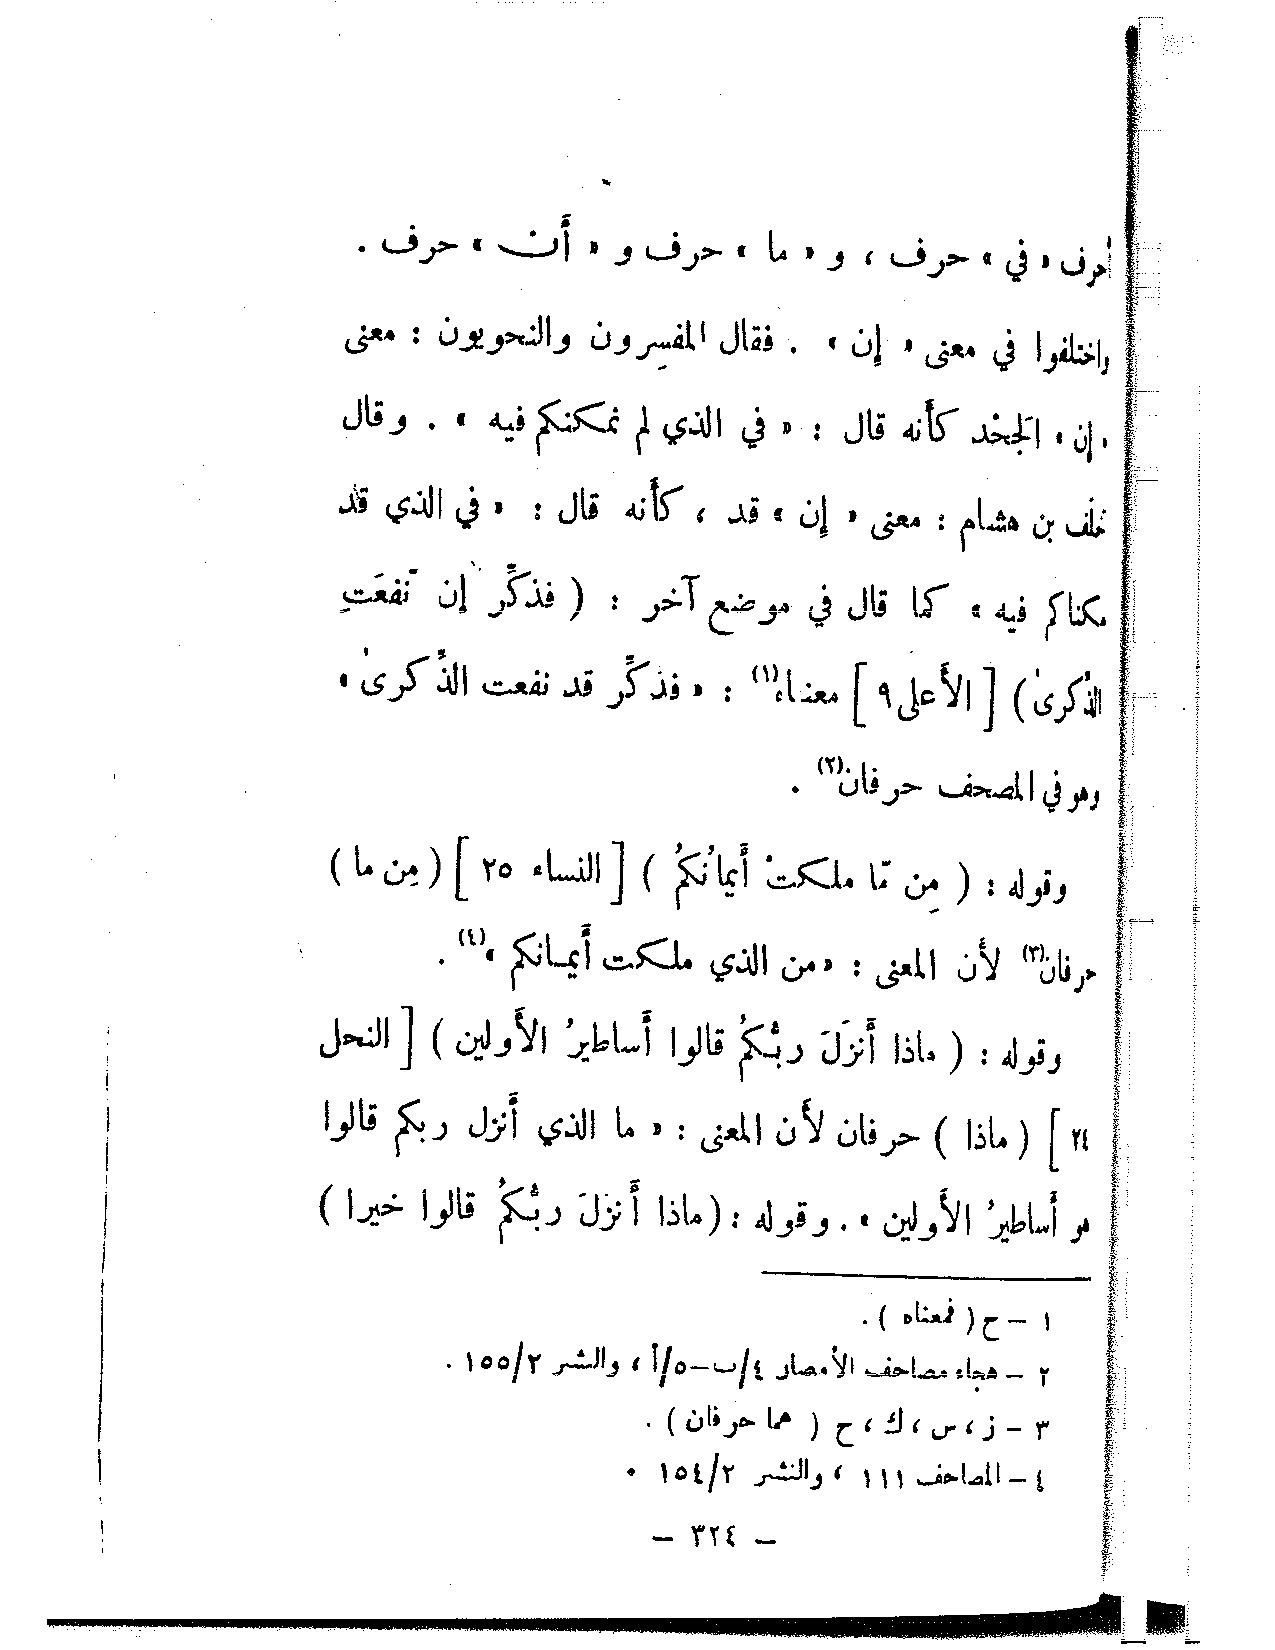 أحرف « في » حرف ، و « ما » حرف و « أن » حرف .
واختلفوا في معنى « إن » . فقال المفسِرون والنحويون : معنى
« إن » الجَحْد كأنه قال : « في الذي لم نمكنكم فيه » . وقال
خلف بن هشام : معنى « إن » قد ، كأنه قال : « في الذي قد
مكناكم فيه » كما قال في موضع آخر : ( فذكِّر إن نَفعَتِ
الذِّكرىٰ ) [ الأعلى ٩ ] معناه(١) : « فذكِّر قد نفعت الذِّكرىٰ »
وهو في المصحف حرفان(٢) .
وقوله : ( مِن مّا ملكتْ أَيمانُكُمْ ) [ النساء ٢٥ ] ( مِن ما )
حرفان(٣) لأن المعنى : « من الذي ملكت أيمانكم »(٤) .
وقوله : ( ماذا أَنزَلَ ربُّكُمْ قالوا أَساطيرُ الأَولين ) [ النحل
٢٤ ] ( ماذا ) حرفان لأن المعنى : « ما الذي أَنزل ربكم قالوا
هو أَساطيرُ الأَولين » . وقوله : ( ماذا أَنزلَ ربُّكُمْ قالوا خيرا )
١ – ح ( فمعناه ) .
٢ – هجاء مصاحف الأمصار ٤/ب–٥/أ ، والنشر ١٥٥/٢ .
٣ – ز ، س ، ك ، ح ( هما حرفان ) .
٤ – المصاحف ١١١ ، والنشر ١٥٤/٢ .
– ٣٢٤ –